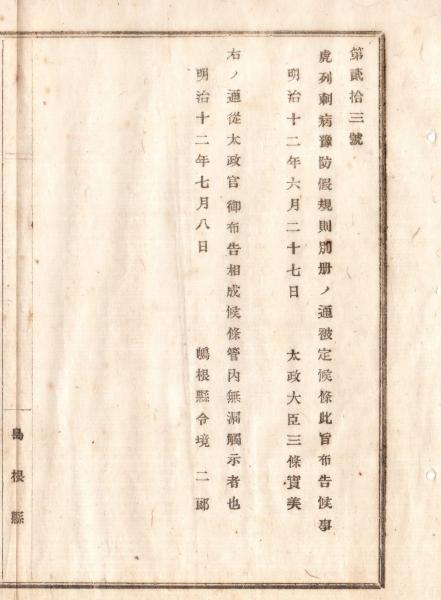 第貳拾三號
虎列剌病豫防假規則別册ノ通被定候條此旨布告候事
明治十二年六月二十七日 太政大臣三條實美
右ノ通從太政官御布告相成候條管内無漏觸示者也
明治十二年七月八日 嶋根縣令境二郎
島根縣